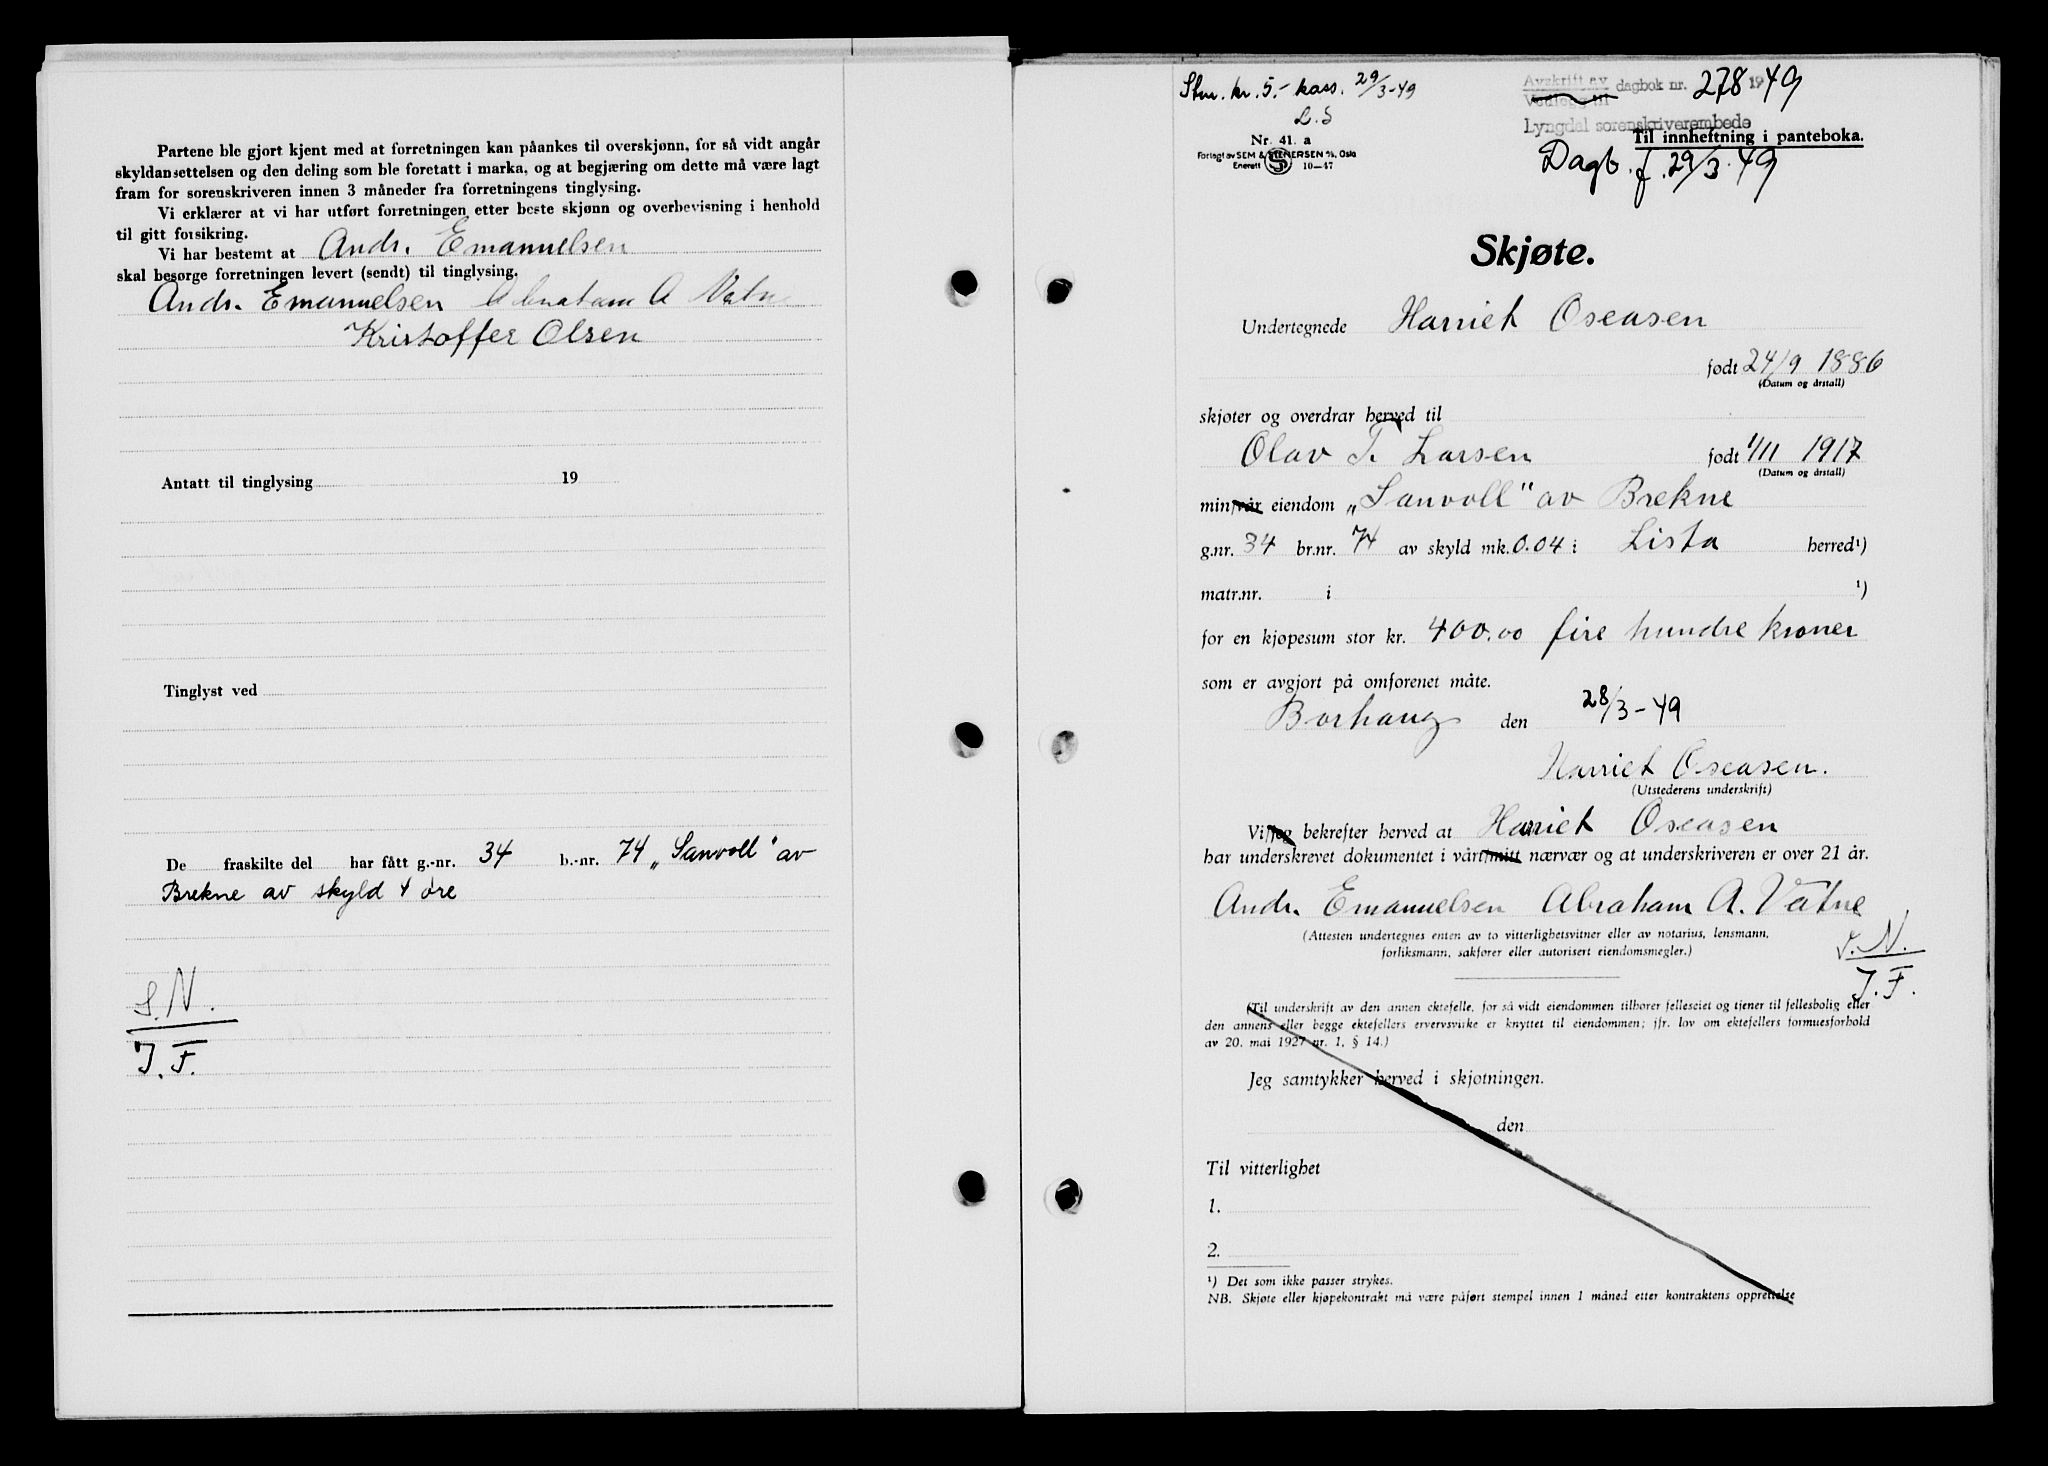 Partene ble gjort kjent med at forretningen kan påankes til overskjønn, for så vidt angår
skyldansettelsen og den deling som ble foretatt i marka, og at begjæring om dette må være lagt
fram for sorenskriveren innen 3 måneder fra forretningens tinglysing.
Vi erklærer at vi har utført forretningen etter beste skjønn og overbevisning i henhold
til gitt forsikring.
Vi har bestemt at Andr. Emanuelsen
skal besørge forretningen levert (sendt) til tinglysing.
Andr. Emanuelsen Abraham A Vatne
Kristoffer Olsen
Antatt til tinglysing 19
Tinglyst ved
De fraskilte del har fått g.-nr. 34 b.-nr. 74 „Sanvoll" av
Brekne av skyld 4 øre
S.N.
J.F.
Stm. kr. 5.- kass. 29/3-49
L.S
Nr. 41. a
Forlagt av SEM & STENERSEN A/S, Oslo
Enerett S 10—47
Avskrift av
Vedlegg til
dagbok nr. 278 1949
Lyngdal sorenskriverembede
Til innheftning i panteboka.
Dagb. f. 29/3.49
Skjøte.
Undertegnede Harriet Oseasen
født 24/9 1886
(Datum og årstall)
skjøter og overdrar herved til
Olav T. Larsen født 1/11 1917
(Datum og årstall)
min/vår eiendom „Sanvoll" av Brekne
g.nr. 34 br.nr. 74 av skyld mk. 0.04 i Lista herred¹)
matr.nr. i ¹)
for en kjøpesum stor kr. 400.00 fire hundre kroner
som er avgjort på omforenet måte.
Borhaug den 28/3-49
Harriet Oseasen.
(Utstederens underskrift)
Vi/jeg bekrefter herved at Harriet Oseasen
har underskrevet dokumentet i vårt/mitt nærvær og at underskriveren er over 21 år.
Andr. Emanuelsen Abraham A. Vatne
(Attesten undertegnes enten av to vitterlighetsvitner eller av notarius, lensmann,
forliksmann, sakfører eller autorisert eiendomsmegler.)
S.N.
J.F.
(Til underskrift av den annen ektefelle, for så vidt eiendommen tilhører felleseiet og tjener til fellesbolig eller
den annens eller begge ektefellers ervervsvirke er knyttet til eiendommen; jfr. lov om ektefellers formuesforhold
av 20. mai 1927 nr. 1, § 14.)
Jeg samtykker herved i skjøtningen.
den
Til vitterlighet
1.
2.
¹) Det som ikke passer strykes.
NB. Skjøte eller kjøpekontrakt må være påført stempel innen 1 måned etter kontraktens opprettelse